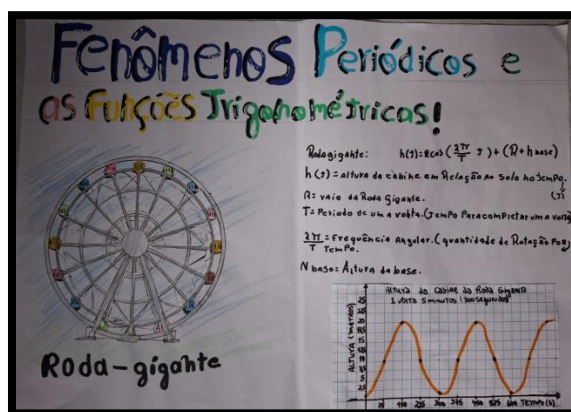 Fenômenos Periódicos e
as Funções Trigonométricas!
Roda gigante: h(t)=Rcos(2π/T t)+(R+hbase)
h(t)=altura da cabine em Relação ao Solo no temPo.
(t)
R= raio da Roda Gigante.
T= Período de uma volta.(TemPo Para completar uma volta)
2π/T = Frequência Angular.(quantidade de Rotação Por
TemPo.
N base= Altura da base.
Altura da Cabine da Roda Gigante
1 volta 5 minutos (300 segundos)
ALTURA (metros)
75 150 225 300 375 450 525 600 TEMPO(s)
Roda-gigante